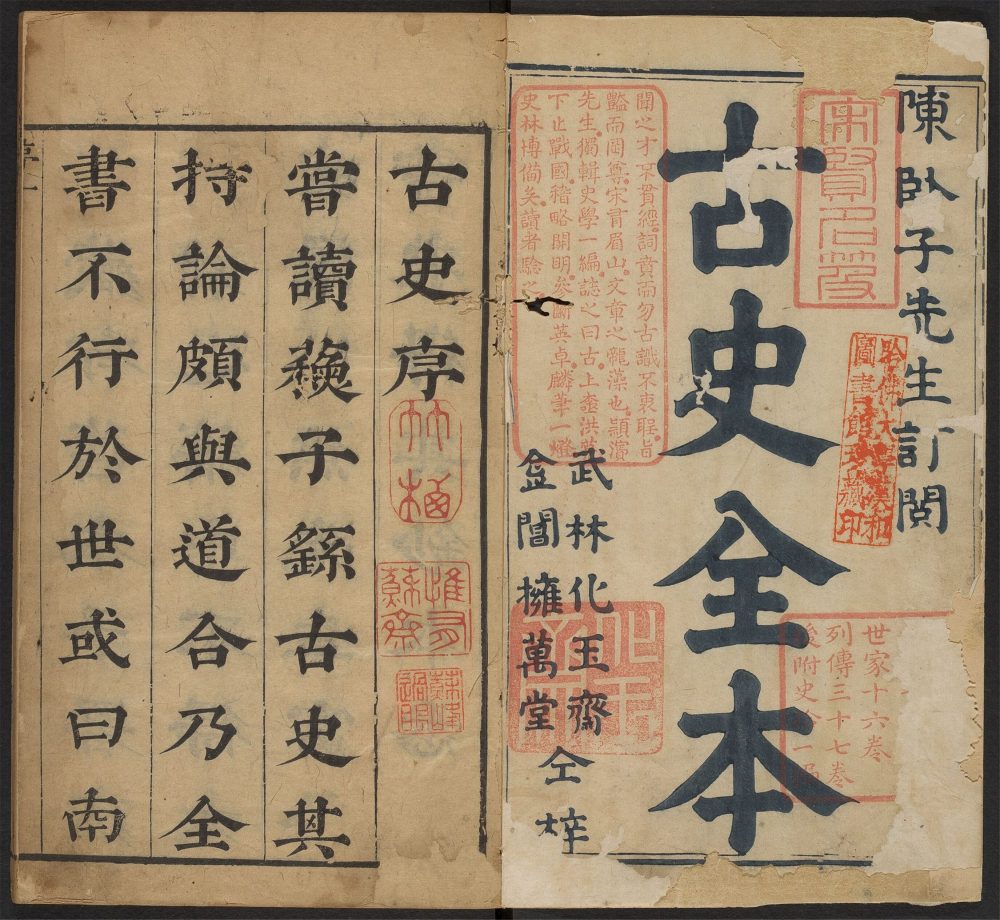 陳臥子先生訂閱
哈佛大學漢和
圖書館珍藏印
世家十六卷
列傳三十七卷
後附史
古史全本
聞之才不貫經詞賁而勿古識不衷聖旨
豁而罔尊宋有眉山文章之龍藻也潁濱
先生獨輯史學一編誌之曰古上
下止戰國稽略開明參斷英卓麟筆一燈
史林博備矣讀者驗之
武林化玉齋
金閶擁萬堂
仝梓
古史序
嘗讀蘓子繇古史其
持論頗與道合乃全
書不行於世或曰南